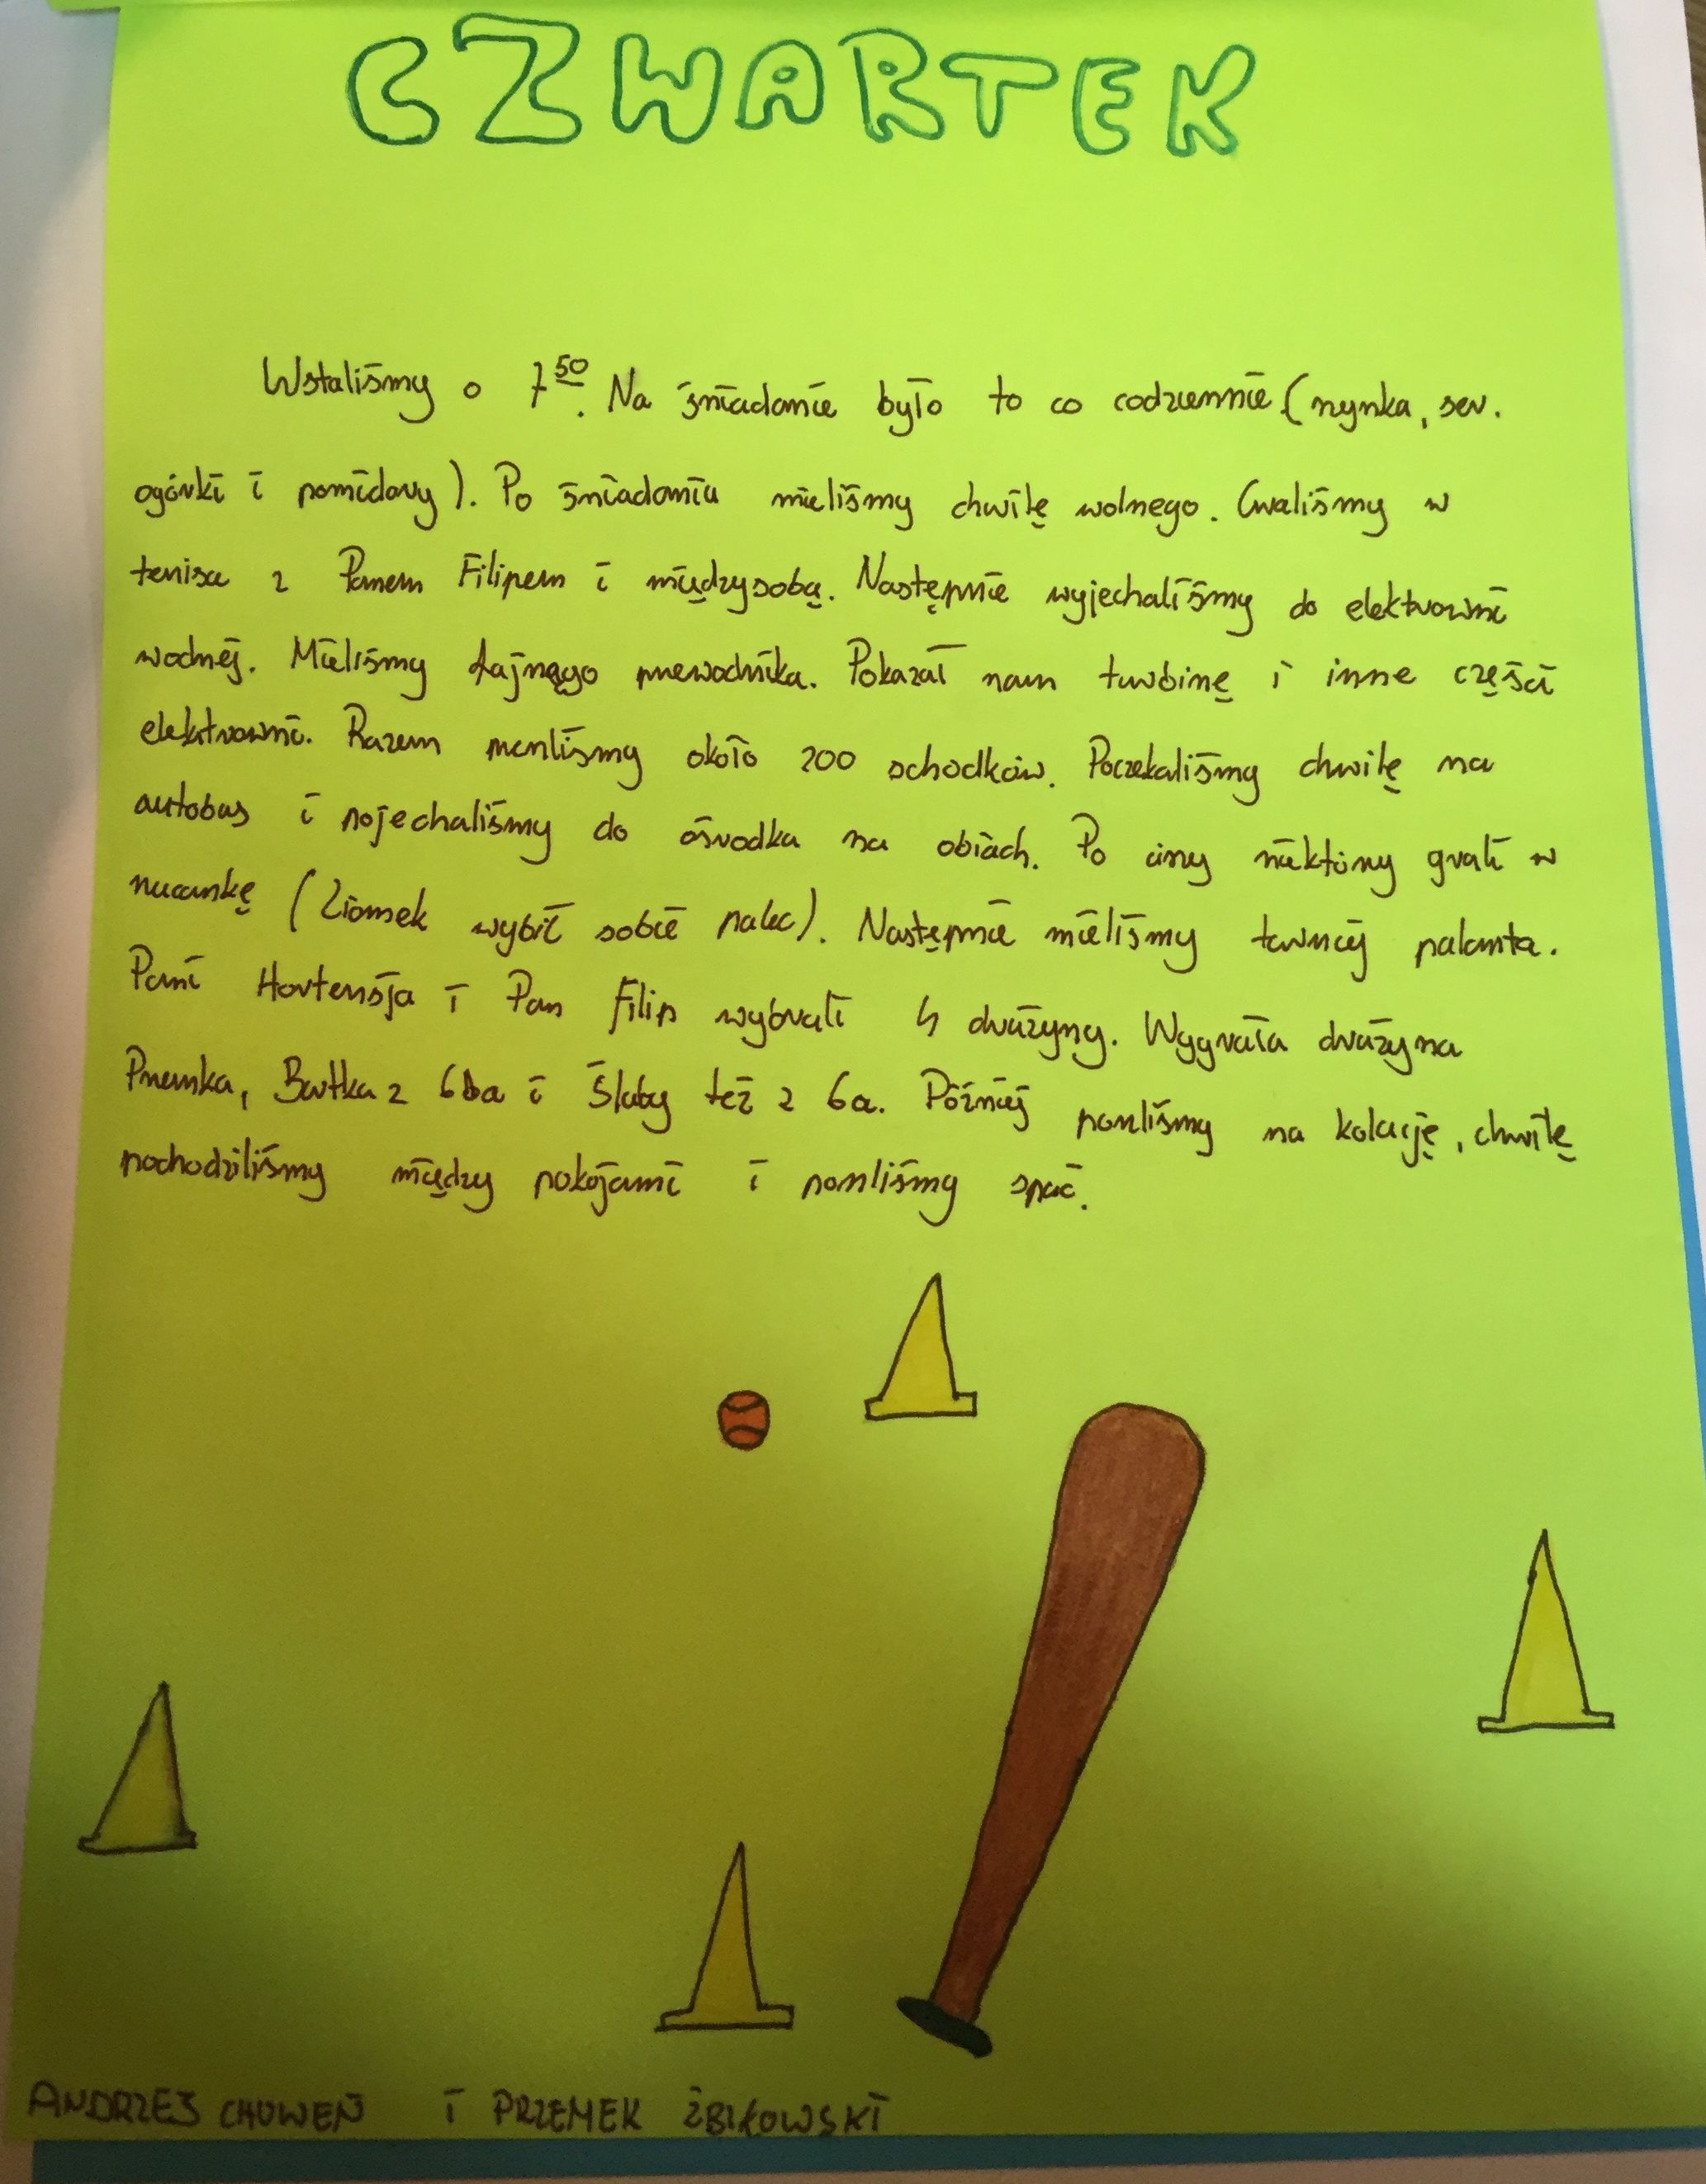 CZWARTEK
Wstaliśmy o 7⁵⁰. Na śniadanie było to co codziennie (szynka, ser.
ogórki i pomidory). Po śniadaniu mieliśmy chwilę wolnego. Graliśmy w
tenisa z Panem Filipem i międzysobą. Następnie wyjechaliśmy do elektrowni
wodnej. Mieliśmy fajnego przewodnika. Pokazał nam turbinę i inne części
elektrowni. Razem przeszliśmy około 200 schodków. Poczekaliśmy chwilę na
autobus i pojechaliśmy do ośrodka na obiach. Po ciszy niektórzy grali w
nucankę (Ziomek wybił sobie palec). Następnie mieliśmy turniej palanta.
Pani Hortensja i Pan Filip wybrali 4 drużyny. Wygrała drużyna
Przemka, Bartka z 6ba i Śluby też z 6a. Później poszliśmy na kolację, chwilę
pochodziliśmy między pokojami i poszliśmy spać.
ANDRZEJ CHUWEŃ i PRZEMEK ŻBIKOWSKI